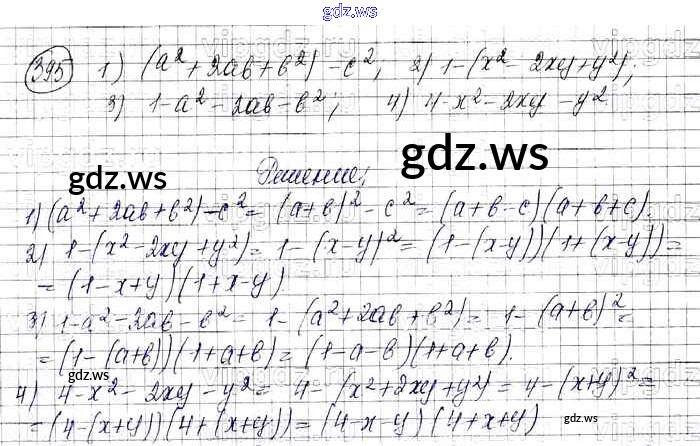 gdz.ws
395 1) (a² + 2ab + b²) - c²; 2) 1-(x² - 2xy + y²);
3) 1-a² - 2ab - b²; 4) 4-x² - 2xy - y².
gdz.ws
gdz.ws
Решение:
1) (a² + 2ab + b²) - c² = (a+b)² - c² = (a+b-c)(a+b+c).
2) 1-(x² - 2xy + y²) = 1-(x-y)² = (1-(x-y))(1+(x-y)) =
= (1-x+y)(1+x-y).
3) 1-a² - 2ab - b² = 1-(a² + 2ab + b²) = 1-(a+b)² =
= (1-(a+b))(1+a+b) = (1-a-b)(1+a+b).
gdz.ws
4) 4-x² - 2xy - y² = 4-(x² + 2xy + y²) = 4-(x+y)² =
= (4-(x+y))(4+(x+y)) = (4-x-y)(4+x+y)
gdz.ws